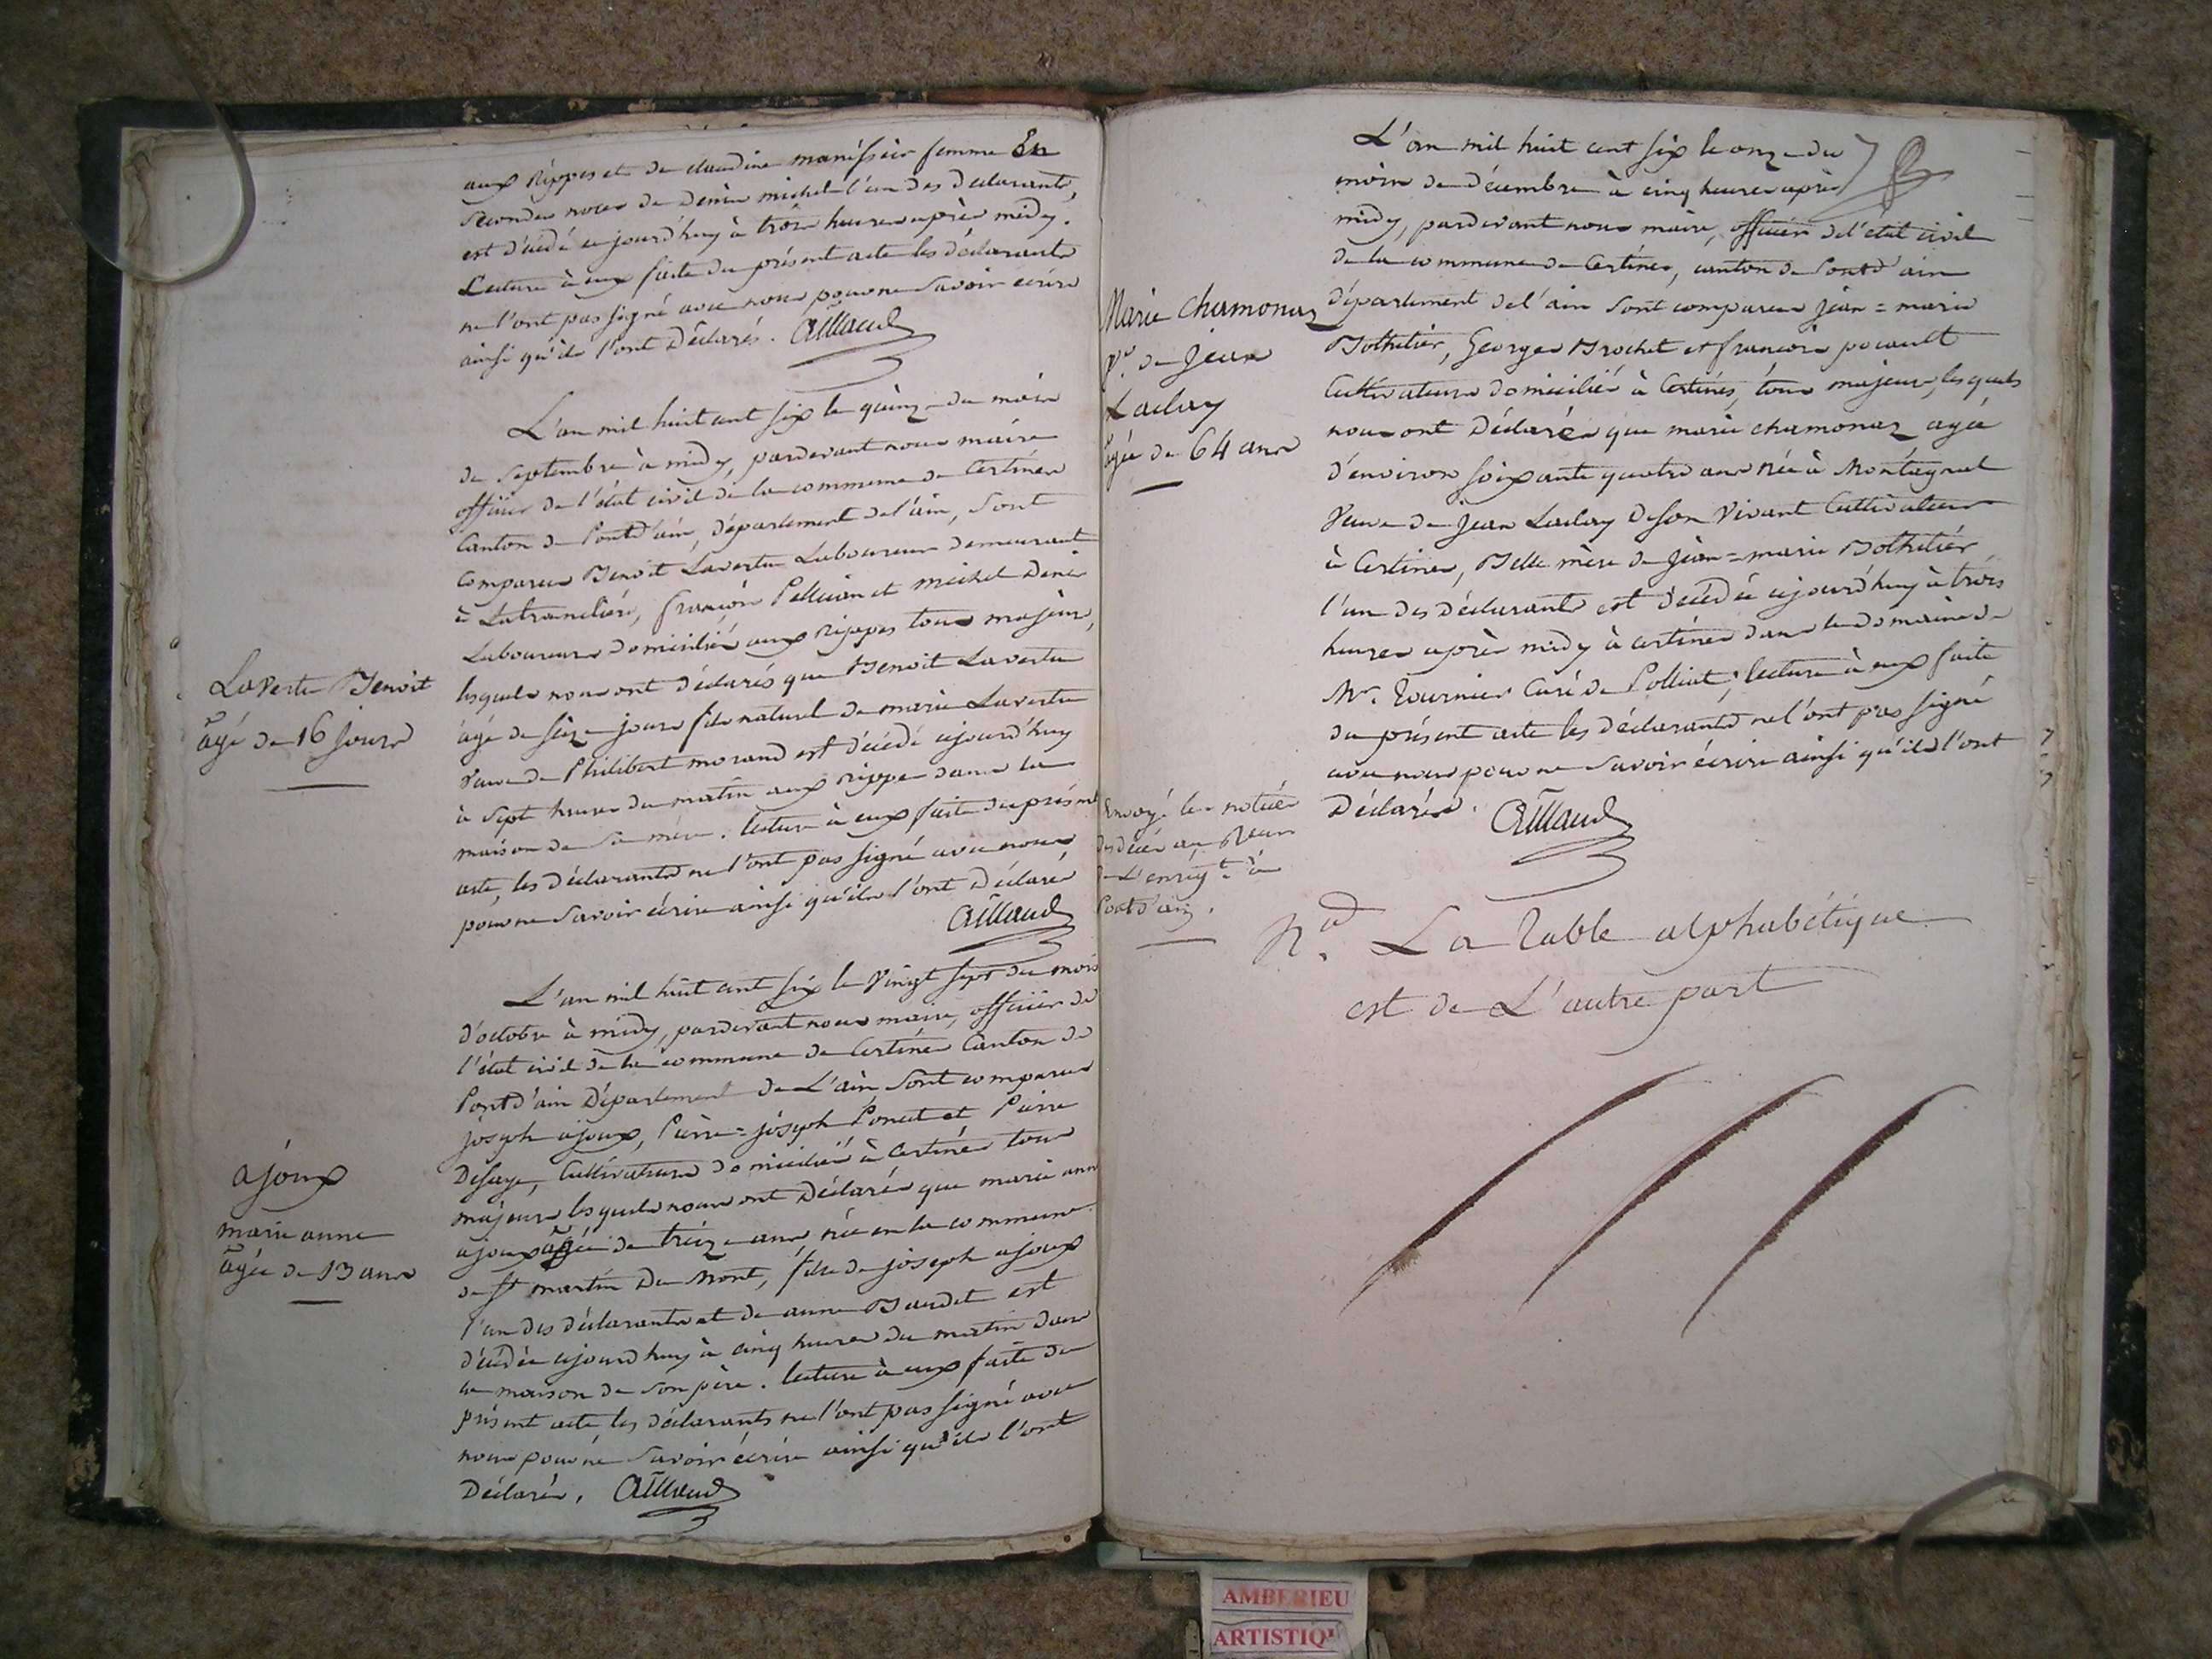 aux Rippes et de claudine manissier femme En
secondes noces de Denis michel l'un des déclarants,
est décédé cejourd'huy à trois heures après midy.
Lecture à eux faite du présent acte les déclarants
ne l'ont pas signé avec nous pour ne savoir écrire
ainsi qu'ils l'ont Déclarés. Aillaud
L'an mil huit cent six le quinze du mois
de septembre à midy, pardevant nous maire
officier de l'état civil de la commune de Certines
Canton de Pontd'ain, département de l'ain, sont
comparus Benoit Lavertu Laboureur demeurant
à Latranclière, françois Pellician et michel Denis
Laboureurs domiciliés aux rippes tous majeurs,
lesquels nous ont déclarés que Benoit Lavertu
âgé de seize jours fils naturel de marie Lavertu
veuve de Philibert morand est décédé cejourd'huy
à sept heures du matin aux rippes dans la
maison de sa mère. lecture à eux faite du présent
acte, les déclarants ne l'ont pas signé avec nous
pour ne savoir écrire ainsi qu'ils l'ont Déclaré
Aillaud
Lavertu Benoit
âgé de 16 jours
L'an mil huit cent six le vingt sept du mois
d'octobre à midy, pardevant nous maire, officier de
l'état civil de la commune de Certines Canton de
Pontd'ain Département de L'ain sont comparus
joseph ajoux, Pierre=joseph Poncet et Pierre
Desaye, Cultivateurs domiciliés à Certines tous
majeurs lesquels nous ont Déclarés que marie anne
ajoux âgée de treize ans née en la commune
de St martin Du Mont, fille de joseph ajoux
l'un des déclarants et de anne Baudet est
décédée cejourd'huy à cinq heures du matin dans
la maison de son père. lecture à eux faite du
présent acte, les déclarants ne l'ont pas signé avec
nous pour ne savoir écrire ainsi qu'ils l'ont
Déclarés, Aillaud
ajoux
marie anne
âgée de 13 ans
L'an mil huit cent six le onze du
mois de décembre à cinq heures après
midy, pardevant nous maire, officier de l'état civil
de la commune de Certines, canton de Pontd'ain
département de l'ain sont comparus jean=marie
Bothelier, Georges Brochet et françois pocault
Cultivateurs domiciliés à Certines, tous majeurs, lesquels
nous ont Déclarés que marie chamonaz agée
d'environ soixante quatre ans née à Montagnat
veuve de jean Laclay De son vivant Cultivateur
à Certines, Belle mère de jean=marie Bothelier,
l'un des déclarants est décédée cejourd'huy à trois
heures après midy à certines dans le domaine de
Mr. Tournier Curé de Polliat; lecture à eux faite
du présent acte les déclarants ne l'ont pas signé
avec nous pour ne savoir écrire ainsi qu'ils l'ont
Déclarés. Aillaud
Marie chamonaz
Ve. de jean
Laclay
âgée de 64 ans
Envoyé les notices
des décés au Receur
de L'enrégt. à
Pontd'ain.
Na. La Table alphabétique
est de L'autre part
AMBERIEU
ARTISTIQU